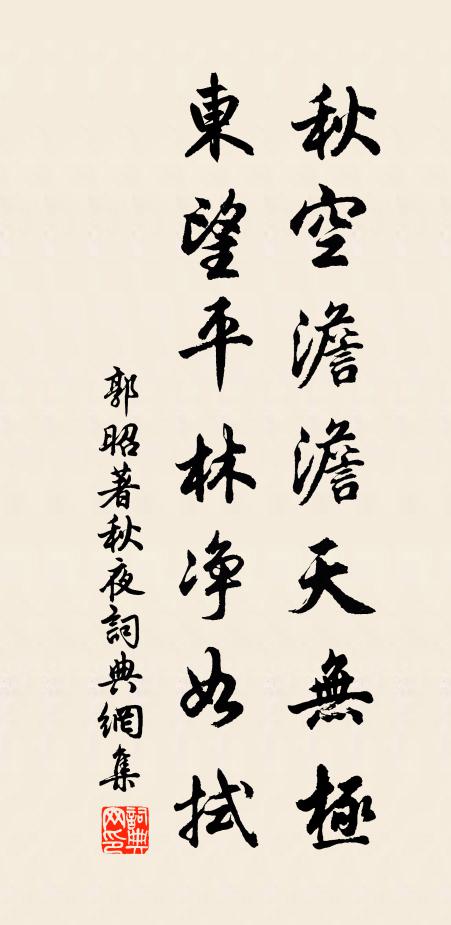 秋空澹澹天無極
東望平林净如拭
郭昭著秋夜詞典網集
詞典网印